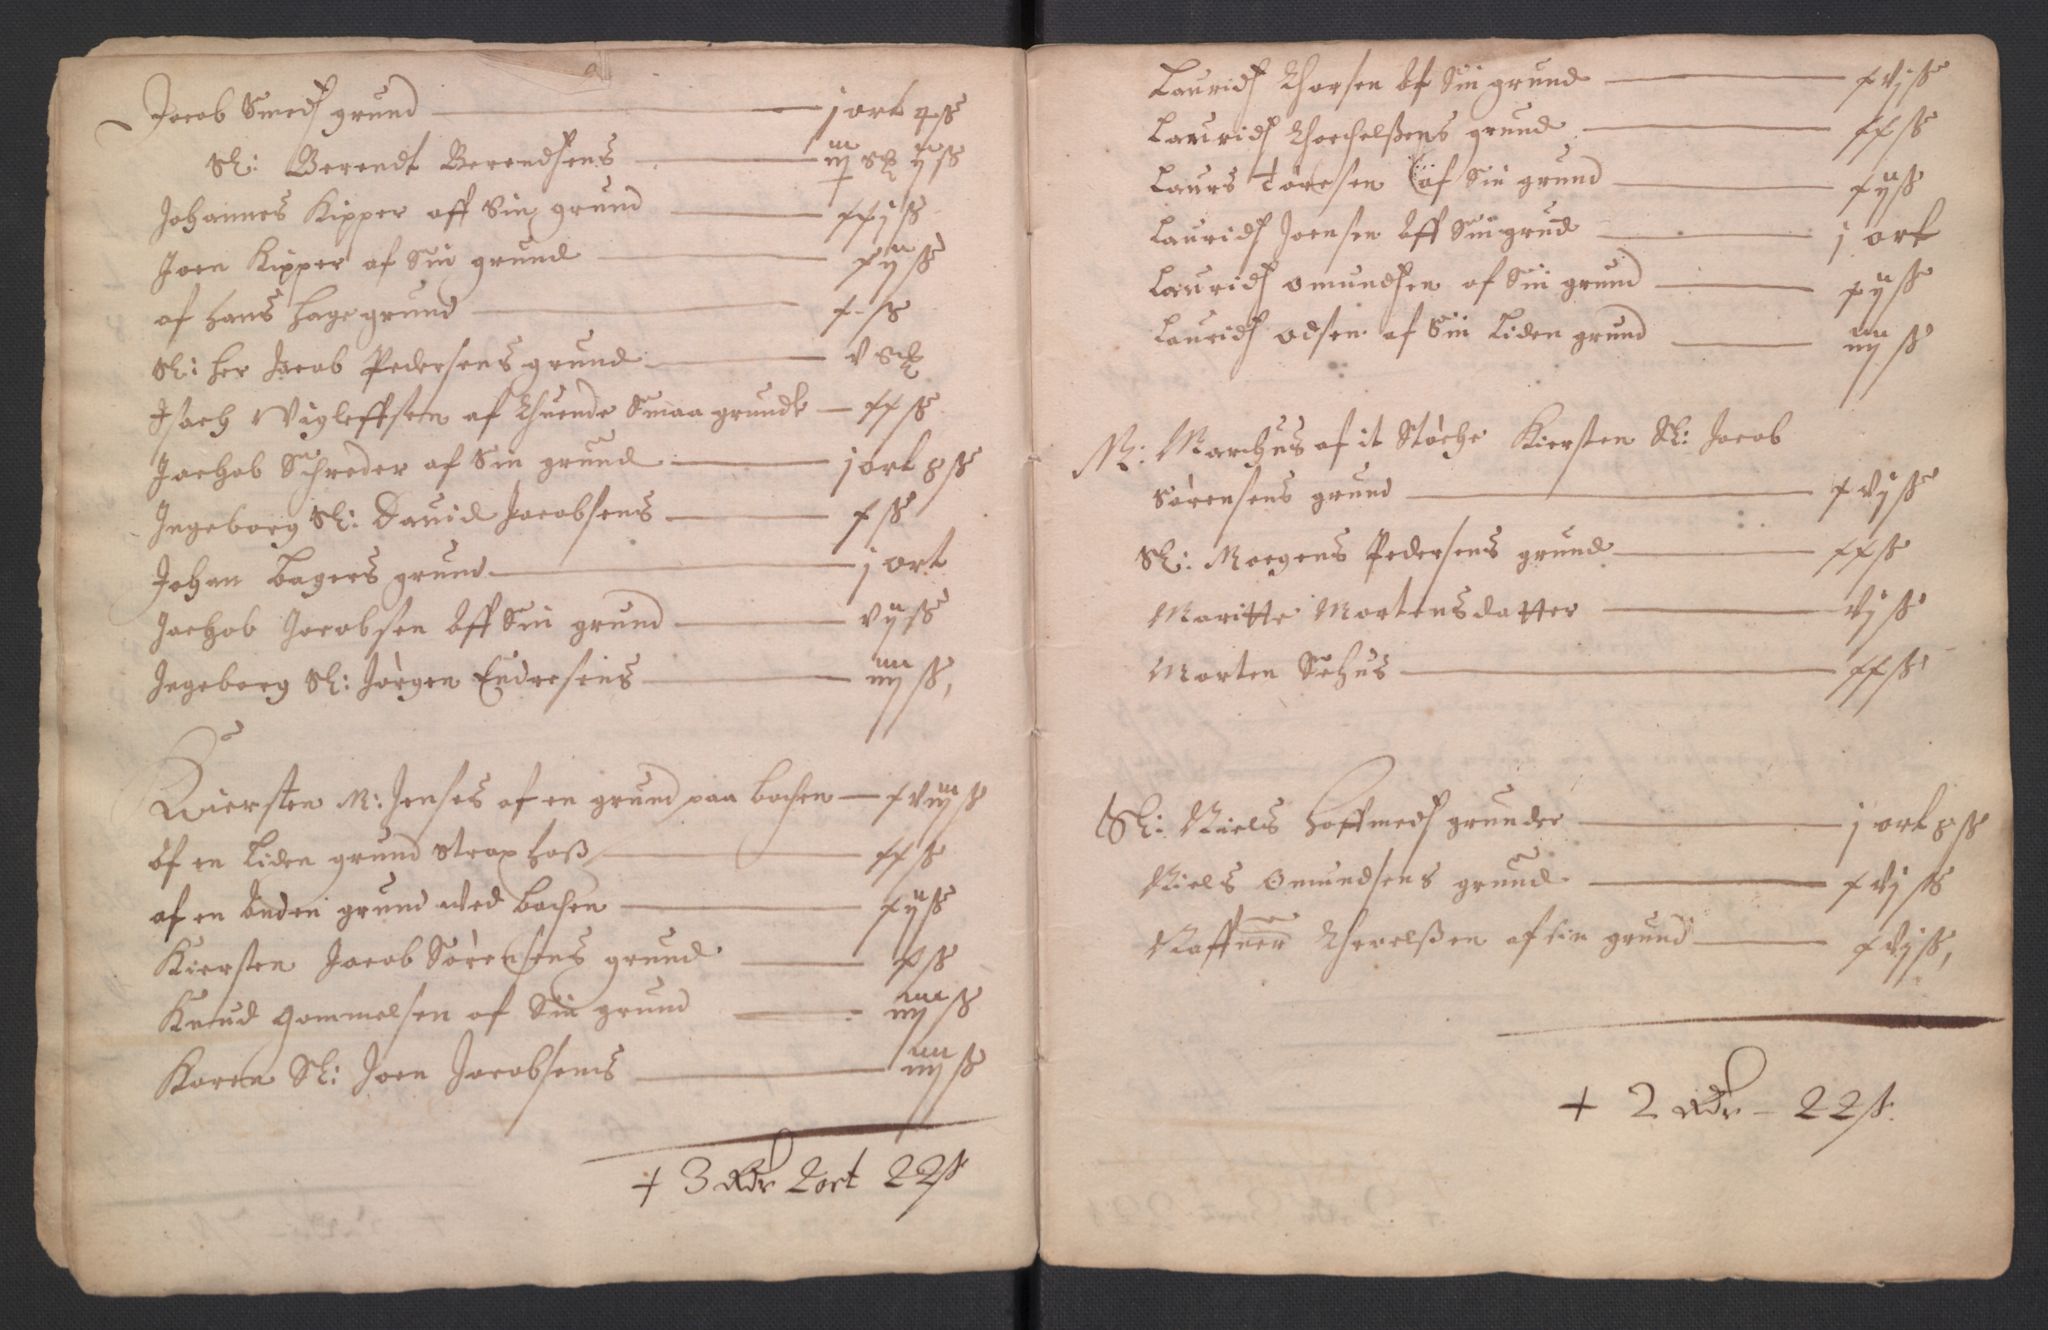 Jacob Smeds grund — j ort 4 ß
Sl: Berendt Berendsens — iij ß
Johannes Kipper aff Sin grund — xxj ß
Joen Kipper af Sin grund — xij ß
af Hans Hage grund — x ß
Sl: Her Jacob Pedersens grund — v
Isach Vigleffsen af thuende Smaa grunde — xx ß
Jachob Schreder af Sin grund — j ort 8 ß
Ingeborg Sl: Dauid Jacobsens — x ß
Johan Bagers grund — j ort
Jachob Jacobsen Aff Sin grund — vij ß
Ingeborg Sl: Jørgen Endresens — iiij ß,
Kiersten M: Jenses af en grund paa bachen — xviij ß
Af en Liden grund strax hoß — xx ß
af en Anden grund Ved bachen — xij ß
Kiersten Jacob Sørensens grund — x ß
Knud Gommelsen af Sin grund — iiij ß
Karen Sl: Joen Jacobsens — iiij ß
+ 3 Rdr 2 ort 22 ß
Lauridß Thorsen Af Sin grund — xvj ß
Lauridß Thorchelßens grund — xx ß
Laurs Toresen af Sin grund — xij ß
Lauridß Joensen Aff Sin grud — j ort
Lauridß Omundsen af Sin grund — xij ß
Lauridß Odsen af Sin Liden grund — iiij ß
M: Marchus af it Støche Kiersten Sl: Jacob
Sørensens grund — xvj ß
Sl: Mogens Pedersens grund — xx ß
Maritte Mortensdatter — vj ß
Morten Sehus — xx ß
Sl: Niels Hoffmeds grunder — j ort 8 ß
Niels Omundsens grund — xvj ß
Raffner Therelßen af sin grund — xvj ß,
+ 2 Rdr – 22 ß